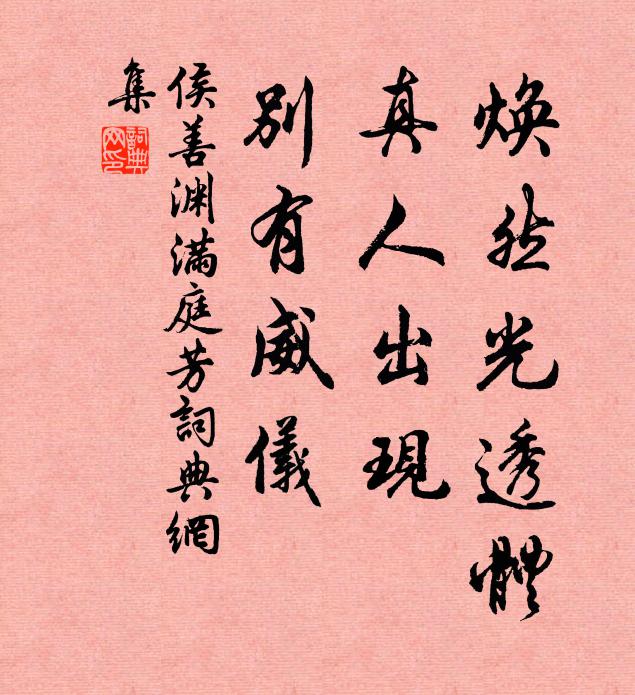 煥然光透體
真人出現
別有威儀
侯善渊滿庭芳詞典網
集
詞典
网印